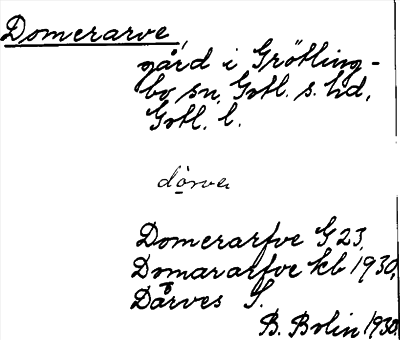 Domerarve,
gård i Grötling-
bo sn, Gotl. s. hd,
Gotl. l.
dorva
Domerarfve G 23,
Domararfve kb 1930,
Darves S.
B. Bolin 1930.